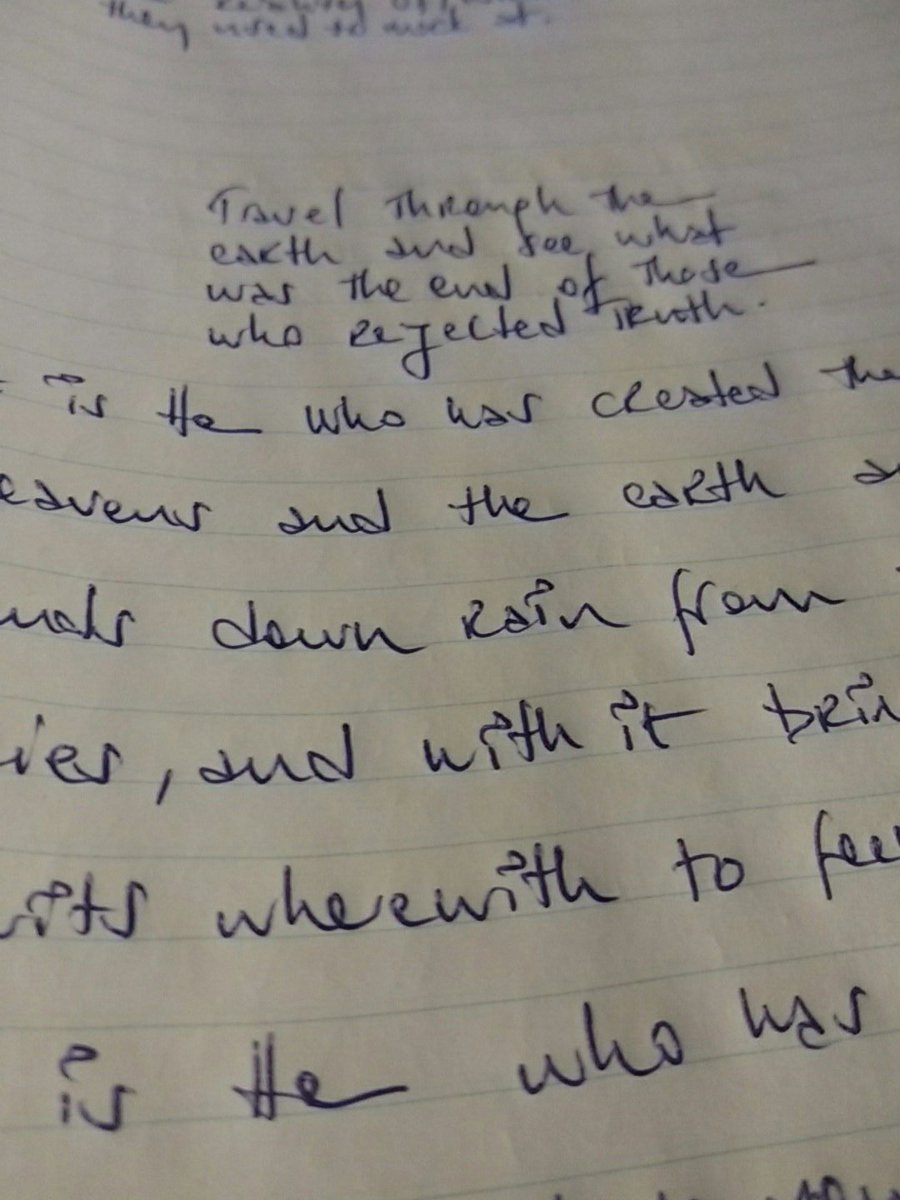 they used to mock at.
Travel Through the
earth and see what
was the end of Those
who rejected Truth.
is He who has created the
eavens and the earth a
nds down rain from
ies, and with it brin
uits wherewith to fee
is He who has